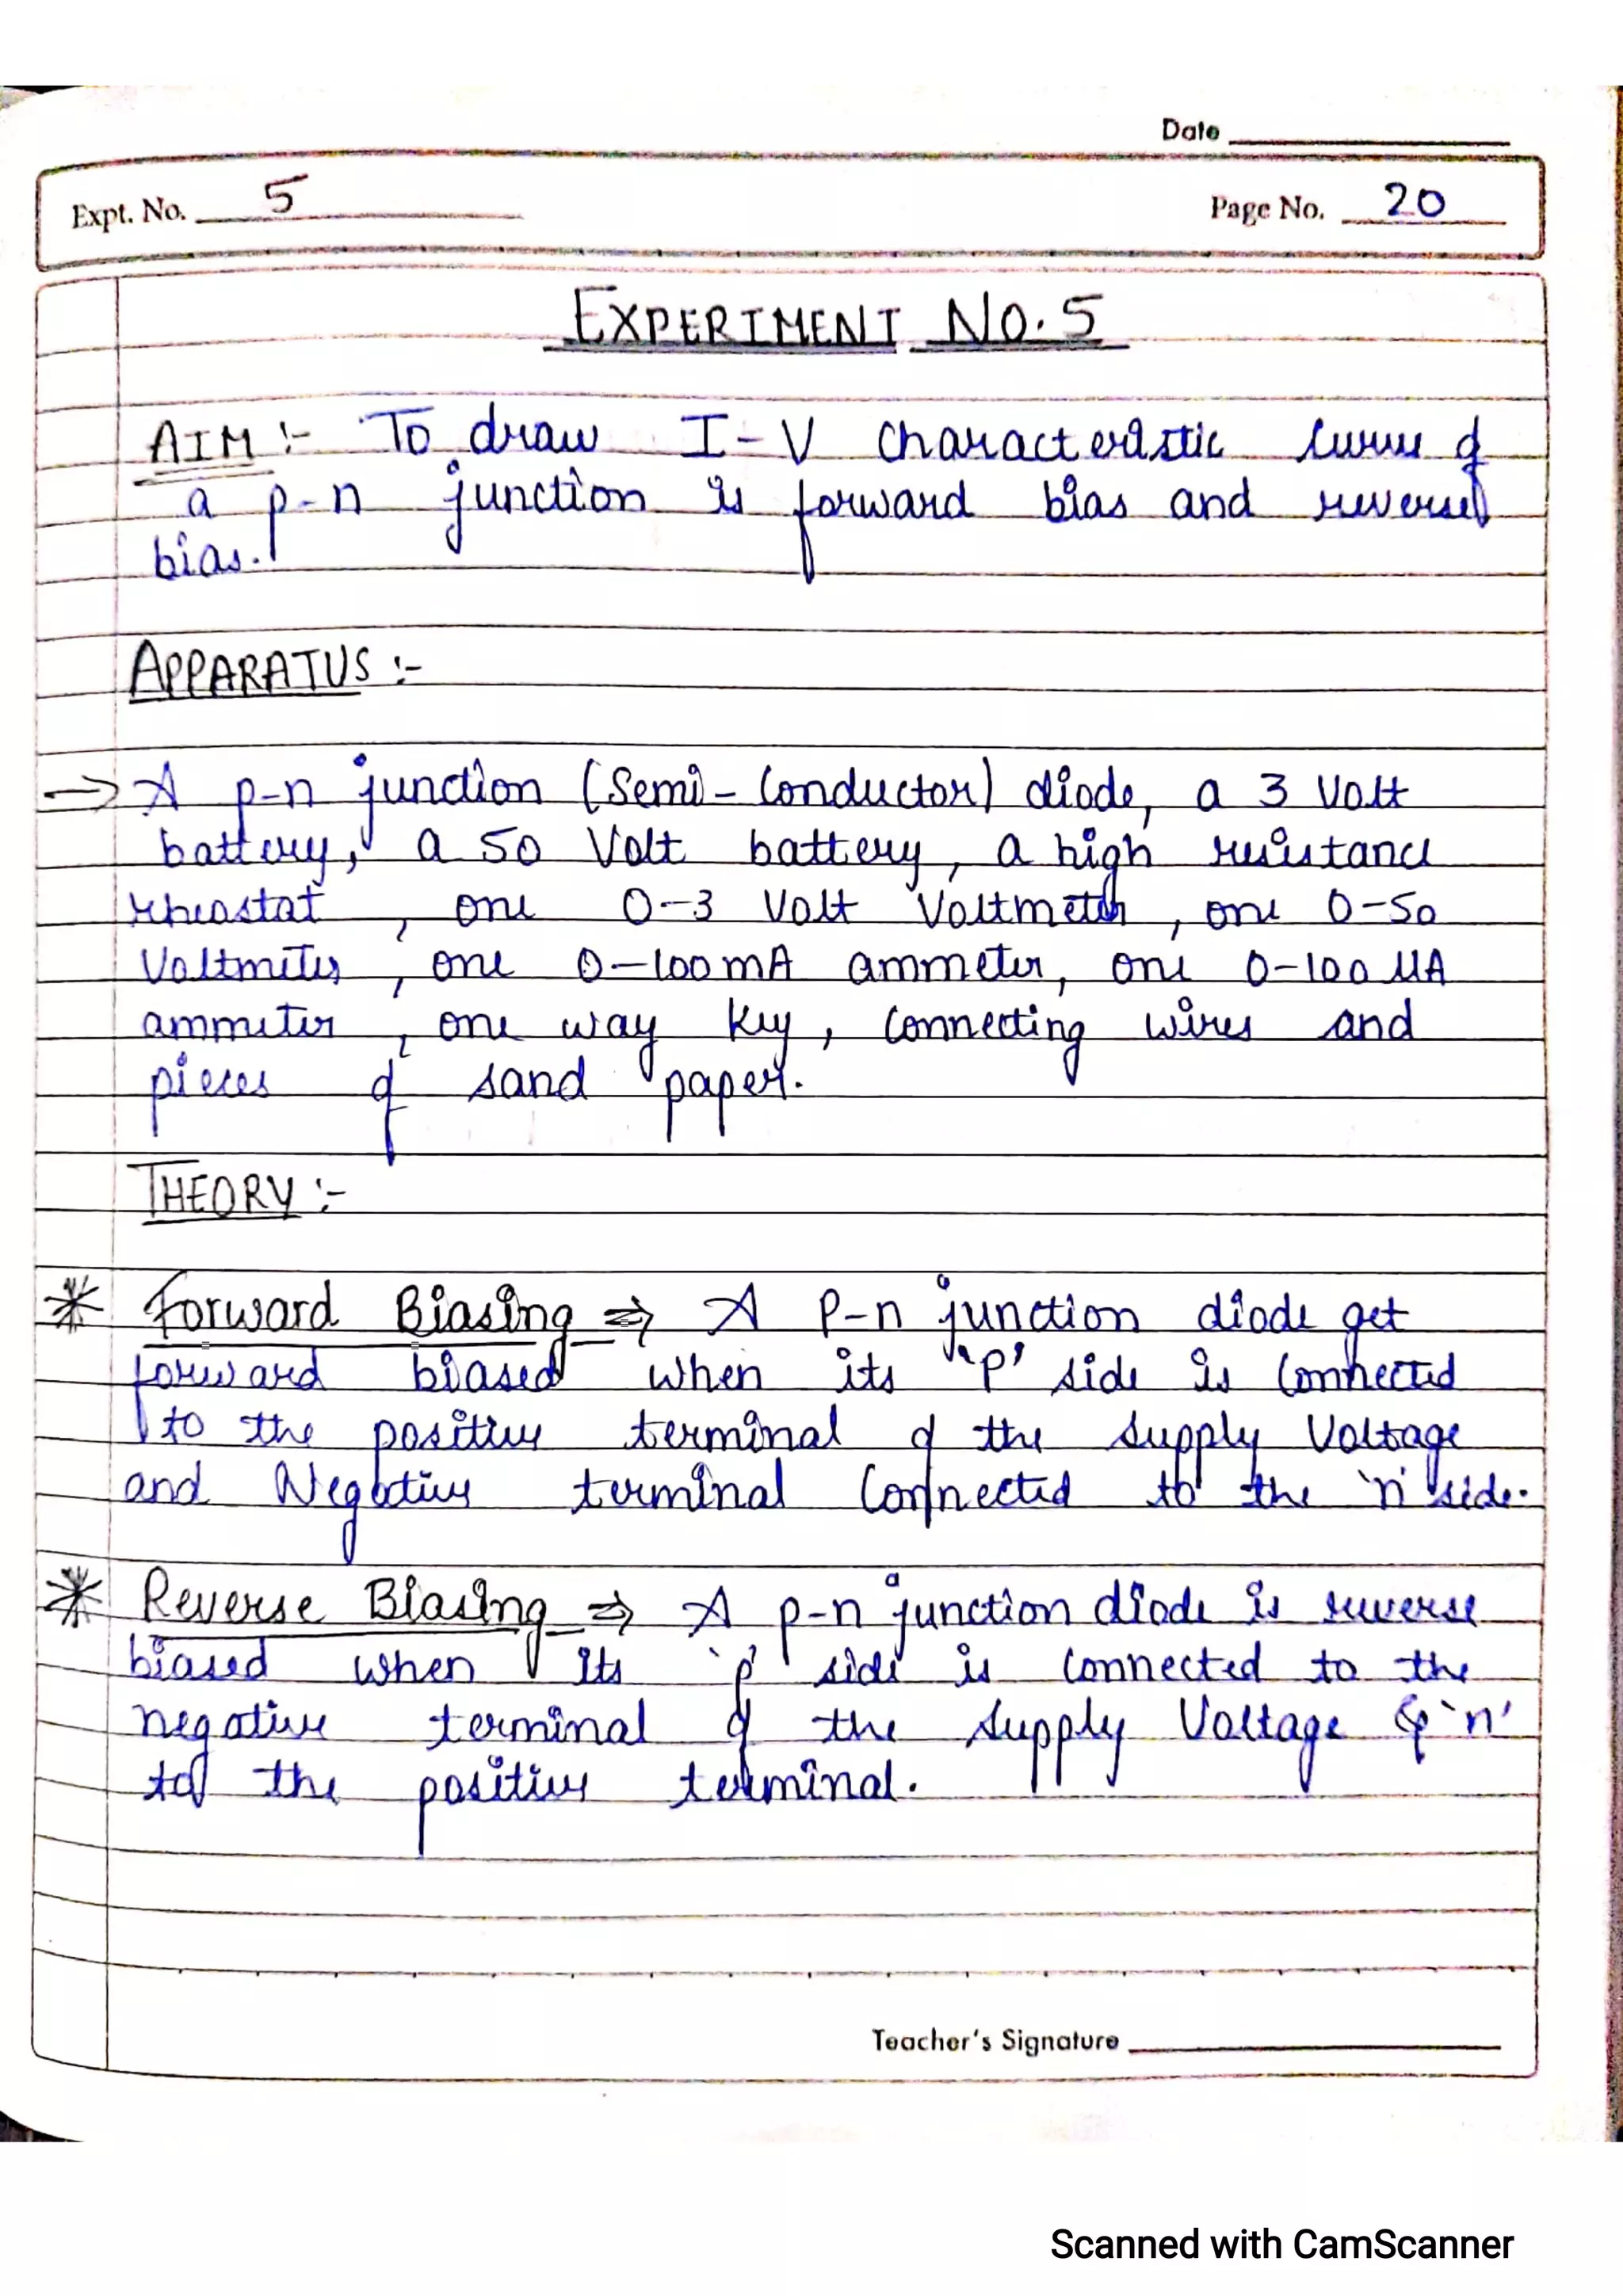 Date
Expt. No. 5
Page No. 20
EXPERIMENT NO. 5
AIM :- To draw I-V characteristic curve of
a p-n junction is forward bias and reversed
bias.
APPARATUS :-
⇒ A p-n junction (Semi-Conductor) diode, a 3 Volt
battery, a 50 Volt battery, a high resistance
rheostat, one 0-3 Volt Voltmeter, one 0-50
Voltmeter, one 0-100 mA ammeter, one 0-100 μA
ammeter, one way key, connecting wires and
pieces of sand paper.
THEORY :-
* Forward Biasing ⇒ A P-n junction diode get
forward biased when its 'p' side is connected
to the positive terminal of the supply Voltage
and Negative terminal connected to the 'n' side.
* Reverse Biasing ⇒ A p-n junction diode is reverse
biased when its 'p' side is connected to the
negative terminal of the supply Voltage & 'n'
to the positive terminal.
Teacher's Signature
Scanned with CamScanner